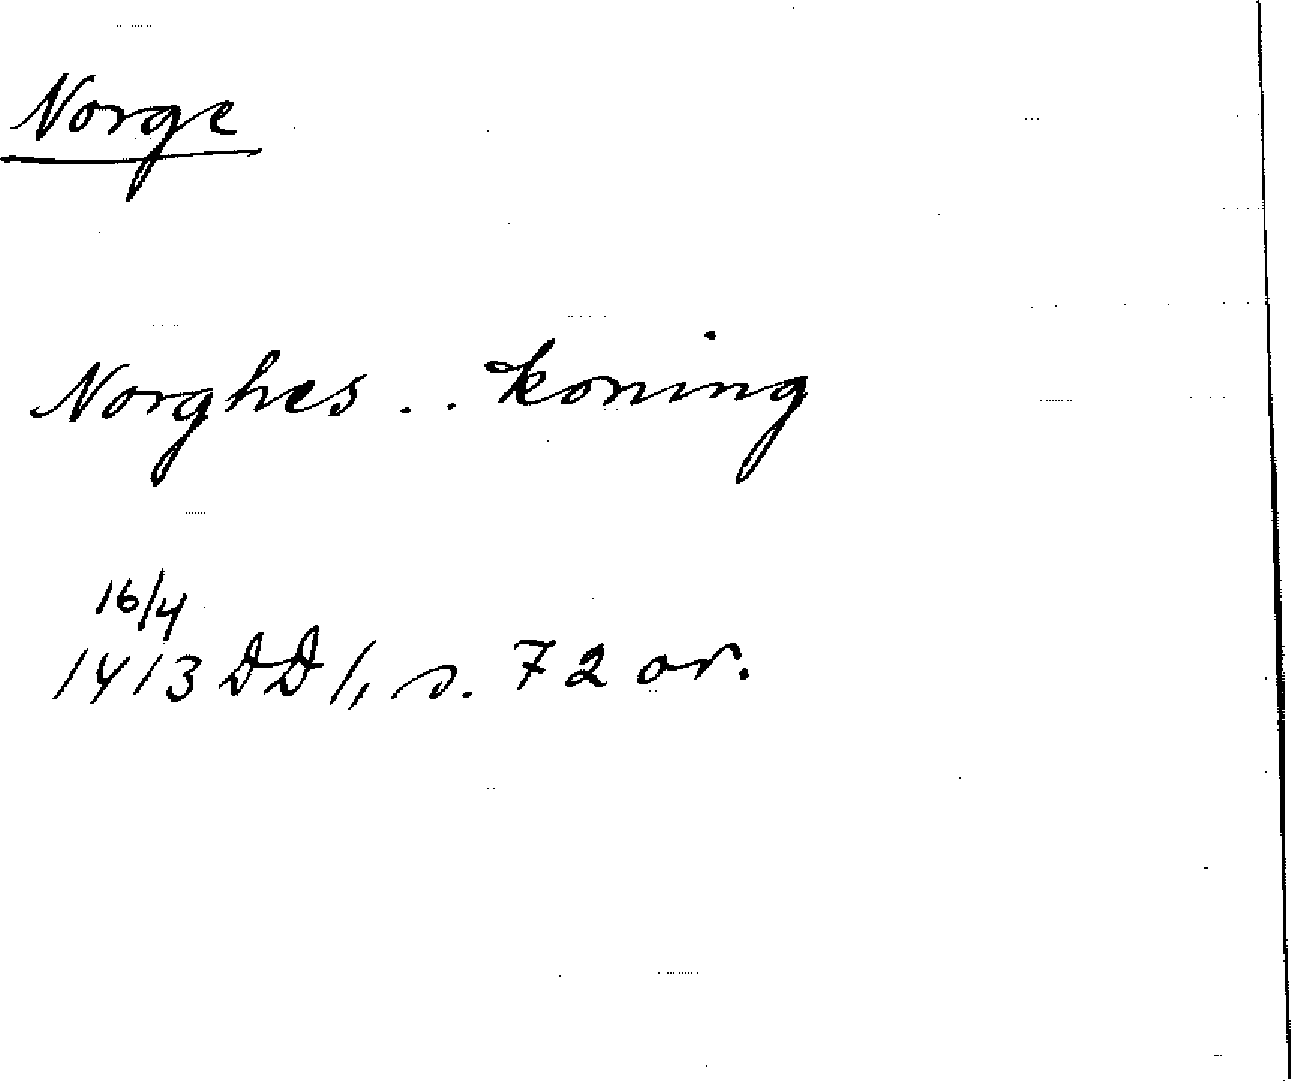 Norge
Norghes .. koning
16/4
1413 DD 1, s. 72 or.